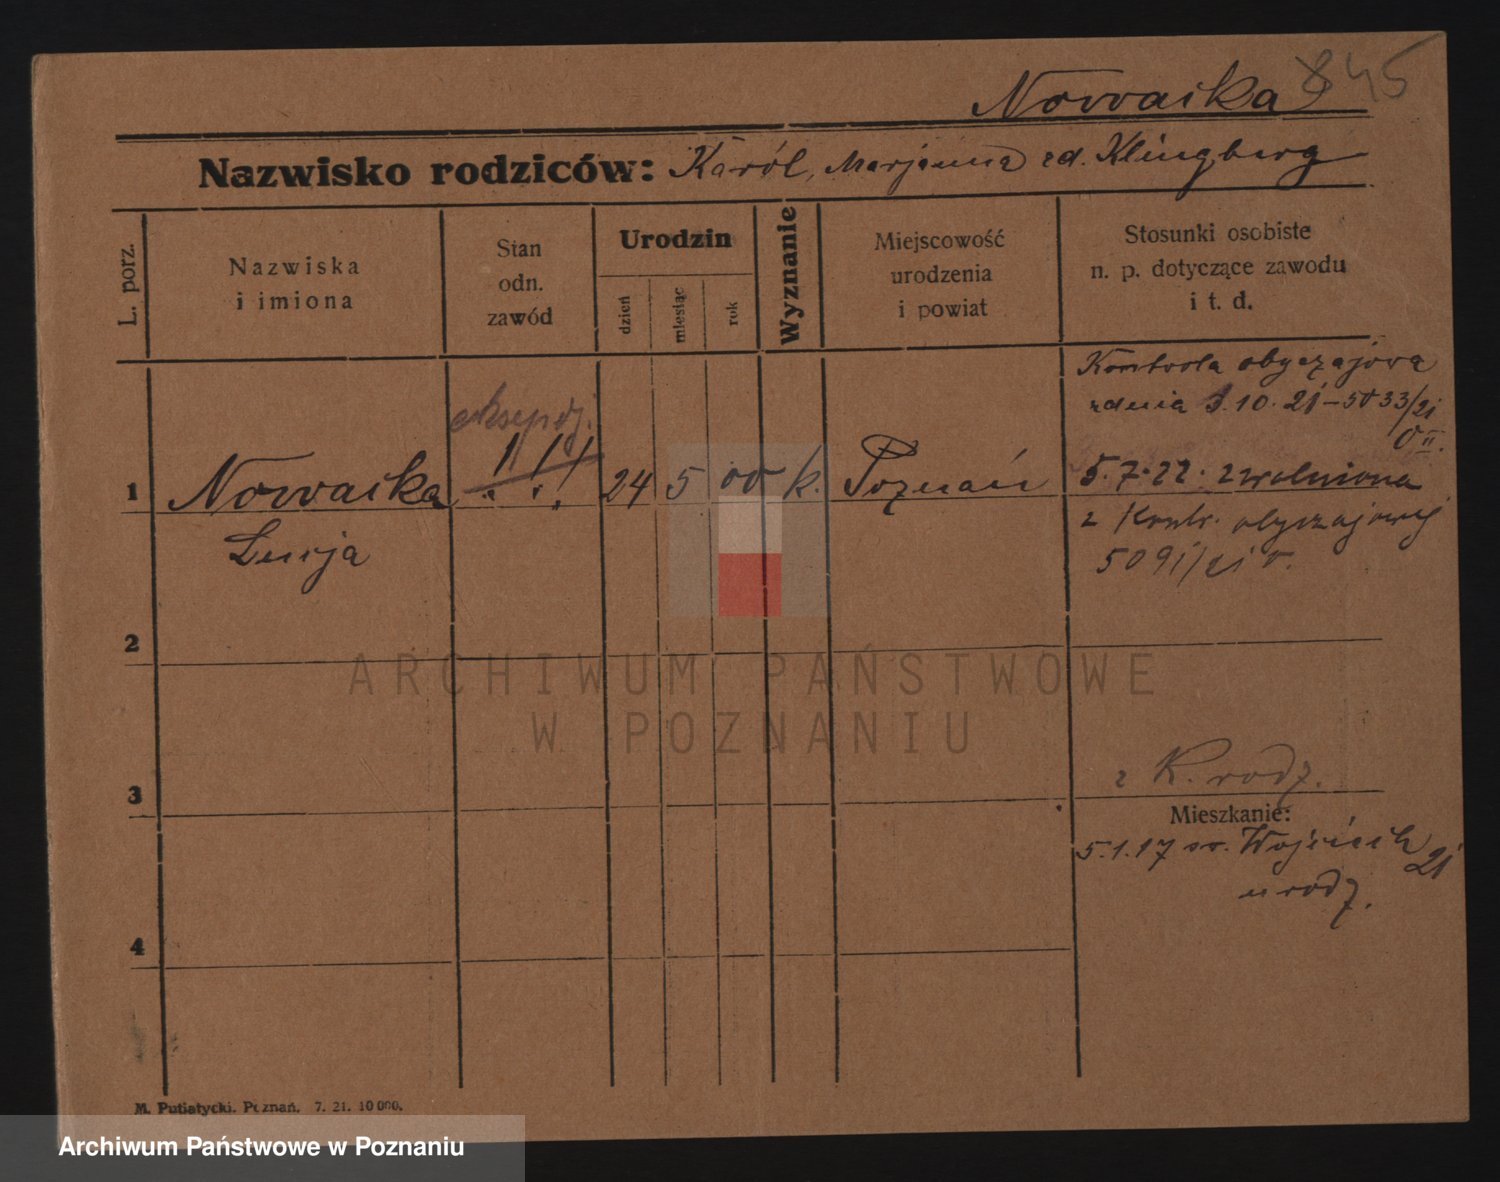 Nowaicka 845
Nazwisko rodziców: Karól, Marjanna zd. Klingberg
L. porz.
Nazwiska
i imiona
Stan
odn.
zawód
Urodzin
dzień
miesiąc
rok
Wyznanie
Miejscowość
urodzenia
i powiat
Stosunki osobiste
n. p. dotyczące zawodu
i t. d.
Kontrola obyczajowa
z dnia 3.10.21 - 5033/21
eksepdj.
1 Nowaicka 24 5 00 k. Poznań
Lucja
5.7.22. zwolniona
z Kontr. obyczajowej
5091/21
2
3
z K. rodz.
Mieszkanie:
5.1.17 św. Wojciech 21
u rodz.
4
M. Putiatycki. Poznań. 7. 21. 10 000.
ARCHIWUM PAŃSTWOWE
W POZNANIU
Archiwum Państwowe w Poznaniu